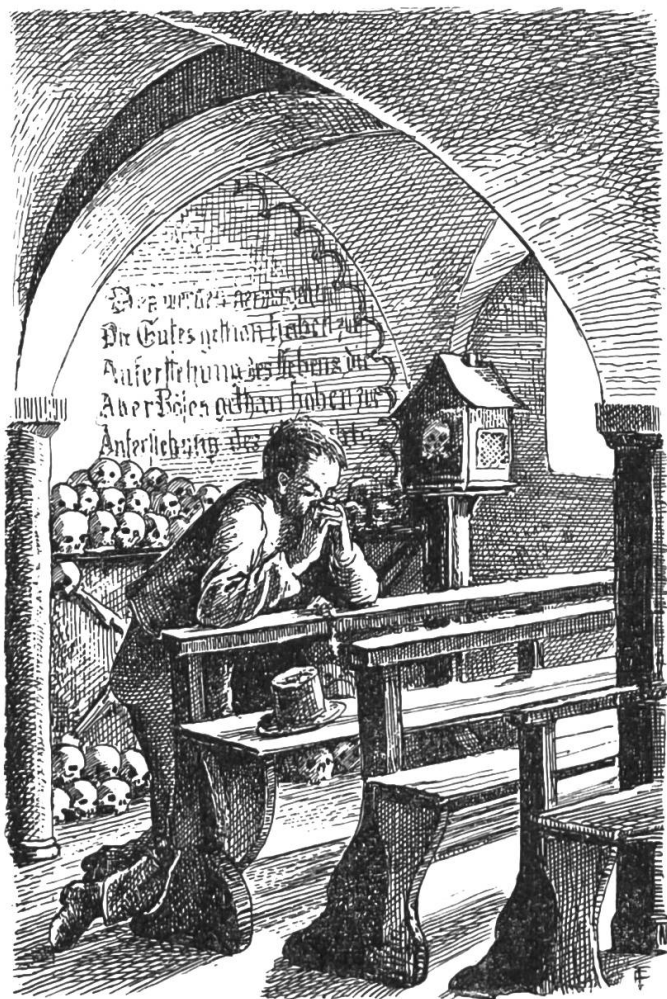 werden
Die Gutes gethan haben zur
Auferstehung des Lebens die
Aber Böses gethan haben zur
Auferstehung des